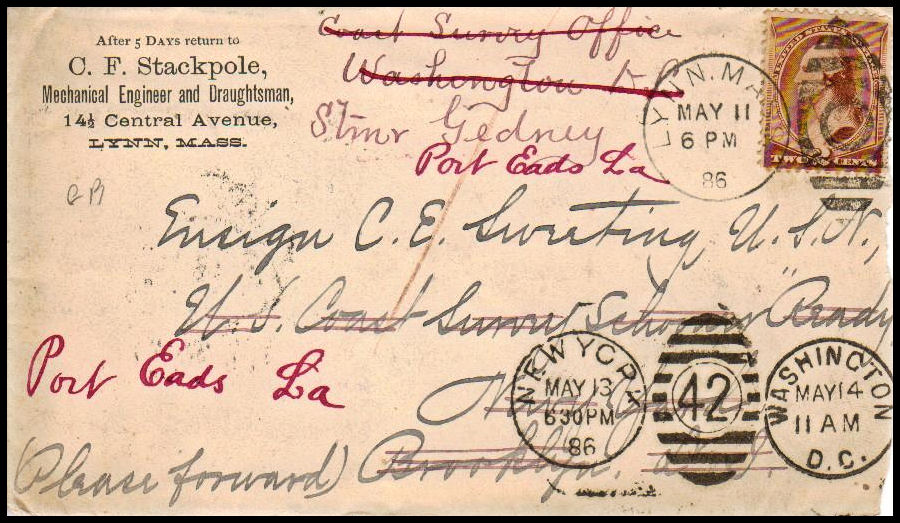 After 5 DAYS return to
C. F. Stackpole,
Mechanical Engineer and Draughtsman,
14½ Central Avenue,
LYNN, MASS.
Coast Survey Office
Washington D.C.
Stmr Gedney
Port Eads La
LYNN. MA
MAY 11
6 PM
86
TWO CENTS
Ensign C. E. Sweeting U. S. N.,
U. S. Coast Survey Schooner "Ready
Port Eads La
New York
(Please forward) Brooklyn.
NEW YORK
MAY 13
630PM
86
42
WASHINGTON
MAY 14
11 AM
D.C.